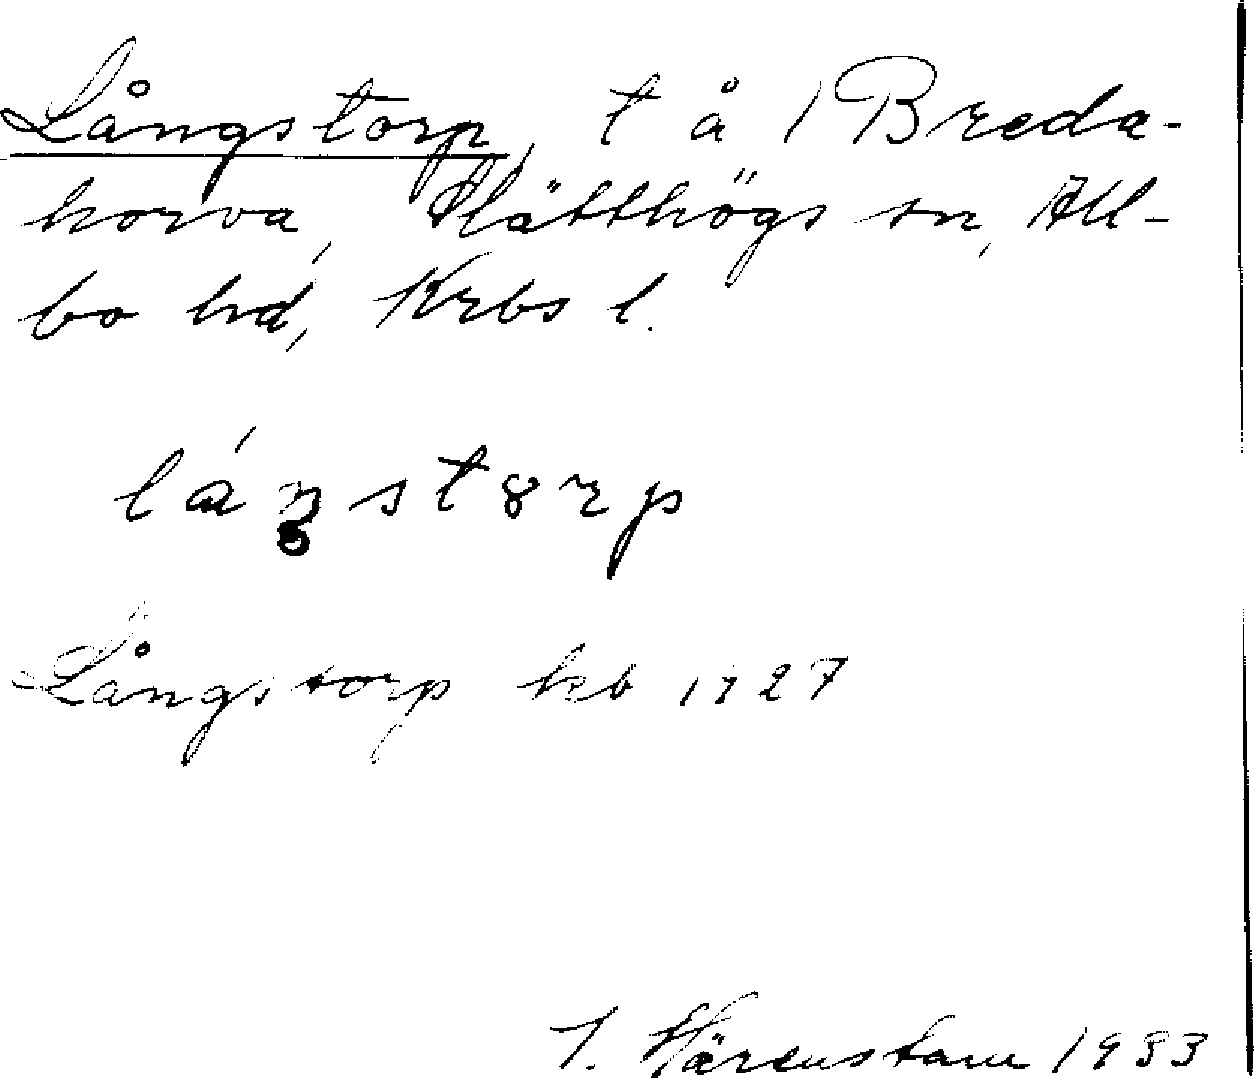 Långstorp, t å 1 Breda-
horva, Slätthögs sn, All-
bo hd, Krbs l.
láŋstȣrp
Långstorp kb 1727
I. Härenstam 1933